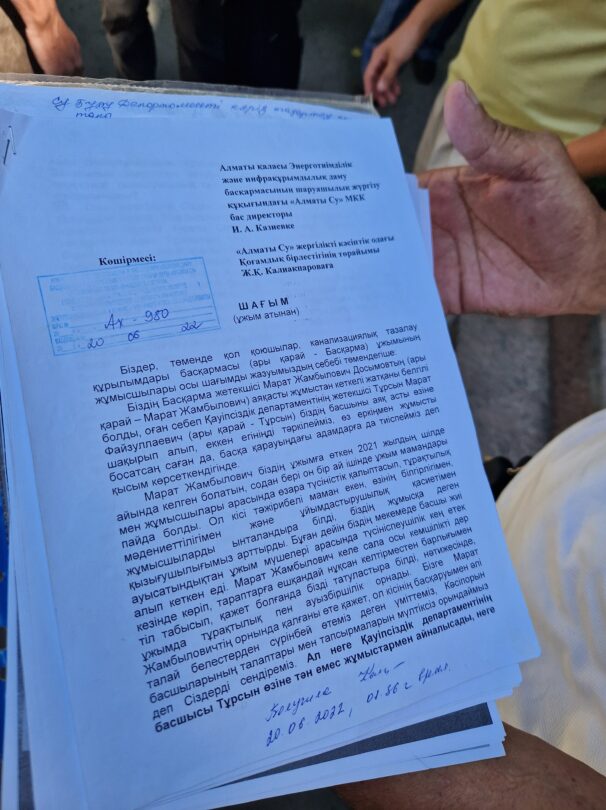 Су бұру Департаменті
Алматы қаласы Энеготиімділік
және инфрақұрымдылық даму
басқармасының шаруашылық жүргізу
құқығындағы «Алматы Су» МКК
бас директоры
И. А. Казиевке
«Алматы Су» жергілікті кәсіптік одағы
Қоғамдық бірлестігінің төрайымы
Ж.Қ. Калиакпароваға
Көшірмесі:
Ах - 980
20 06 22
ШАҒЫМ
(ұжым атынан)
Біздер, төменде қол қоюшылар, канализациялық тазалау
құрылымдары басқармасы (ары қарай - Басқарма) ұжымының
жұмысшылары осы шағымды жазуымыздың себебі төмендегіше:
Біздің Басқарма жетекшісі Марат Жамбылович Досымовтың (ары
қарай – Марат Жамбылович) аяқасты жұмыстан кеткелі жатқаны белгілі
болды, оған себеп Қауіпсіздік департаментінің жетекшісі Тұрсын Марат
Файзуллаевич (ары қарай - Тұрсын) біздің басшыны аяқ асты өзіне
шақырып алып, еккен егініңді тәркілейміз, өз еркіңмен жұмысты
босатсаң саған да, басқа қарауындағы адамдарға да тиіспейміз деп
қысым көрсеткендігінде.
Марат Жамбылович біздің ұжымға өткен 2021 жылдың шілде
айында келген болатын, содан бері он бір ай ішінде ұжым мамандары
мен жұмысшылары арасында өзара түсіністік қалыптасып, тұрақтылық
пайда болды. Ол кісі тәжірибелі маман екен, өзінің білгірлігімен,
мәдениеттілігімен және ұйымдастырушылық қасиетімен
жұмысшыларды ынталандыра білді, біздің жұмысқа деген
қызығушылығымыз арттырды. Бұған дейін біздің мекемеде басшы жиі
ауысатындықтан ұжым мүшелері арасында түсініспеушілік кең етек
алып кеткен еді. Марат Жамбылович келе сала осы кемшілікті дер
кезінде көріп, тараптарға ешқандай нұқсан келтірместен барлығымен
тіл табысып, қажет болғанда бізді татуластыра білді, нәтижесінде,
ұжымда тұрақтылық пен ауызбіршілік орнады. Бізге Марат
Жамбыловичтің орнында қалғаны өте қажет, ол кісінің басқаруымен әлі
талай белестерден сүрінбей өтеміз деген үміттеміз. Кәсіпорын
басшыларының талаптары мен тапсырмаларын мүлтіксіз орындаймыз
деп Сіздерді сендіреміз. Ал неге Қауіпсіздік департаментінің
басшысы Тұрсын өзіне тән емес жұмыстармен айналысады, неге
20.06.2022,